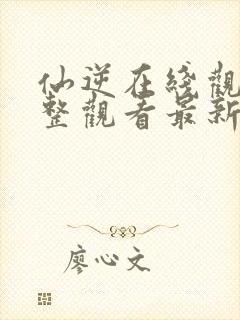 仙逆在线觀
整觀看最新
廖心文